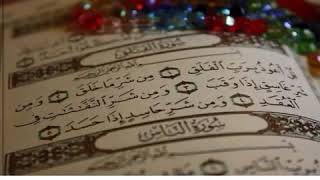 سُورَةُ الْفَلَقِ
قُلْ أَعُوذُ بِرَبِّ الْفَلَقِ ۝ مِن شَرِّ مَا خَلَقَ ۝ وَمِن
شَرِّ غَاسِقٍ إِذَا وَقَبَ ۝ وَمِن شَرِّ النَّفَّٰثَٰتِ فِى
الْعُقَدِ ۝ وَمِن شَرِّ حَاسِدٍ إِذَا حَسَدَ ۝
سُورَةُ النَّاسِ